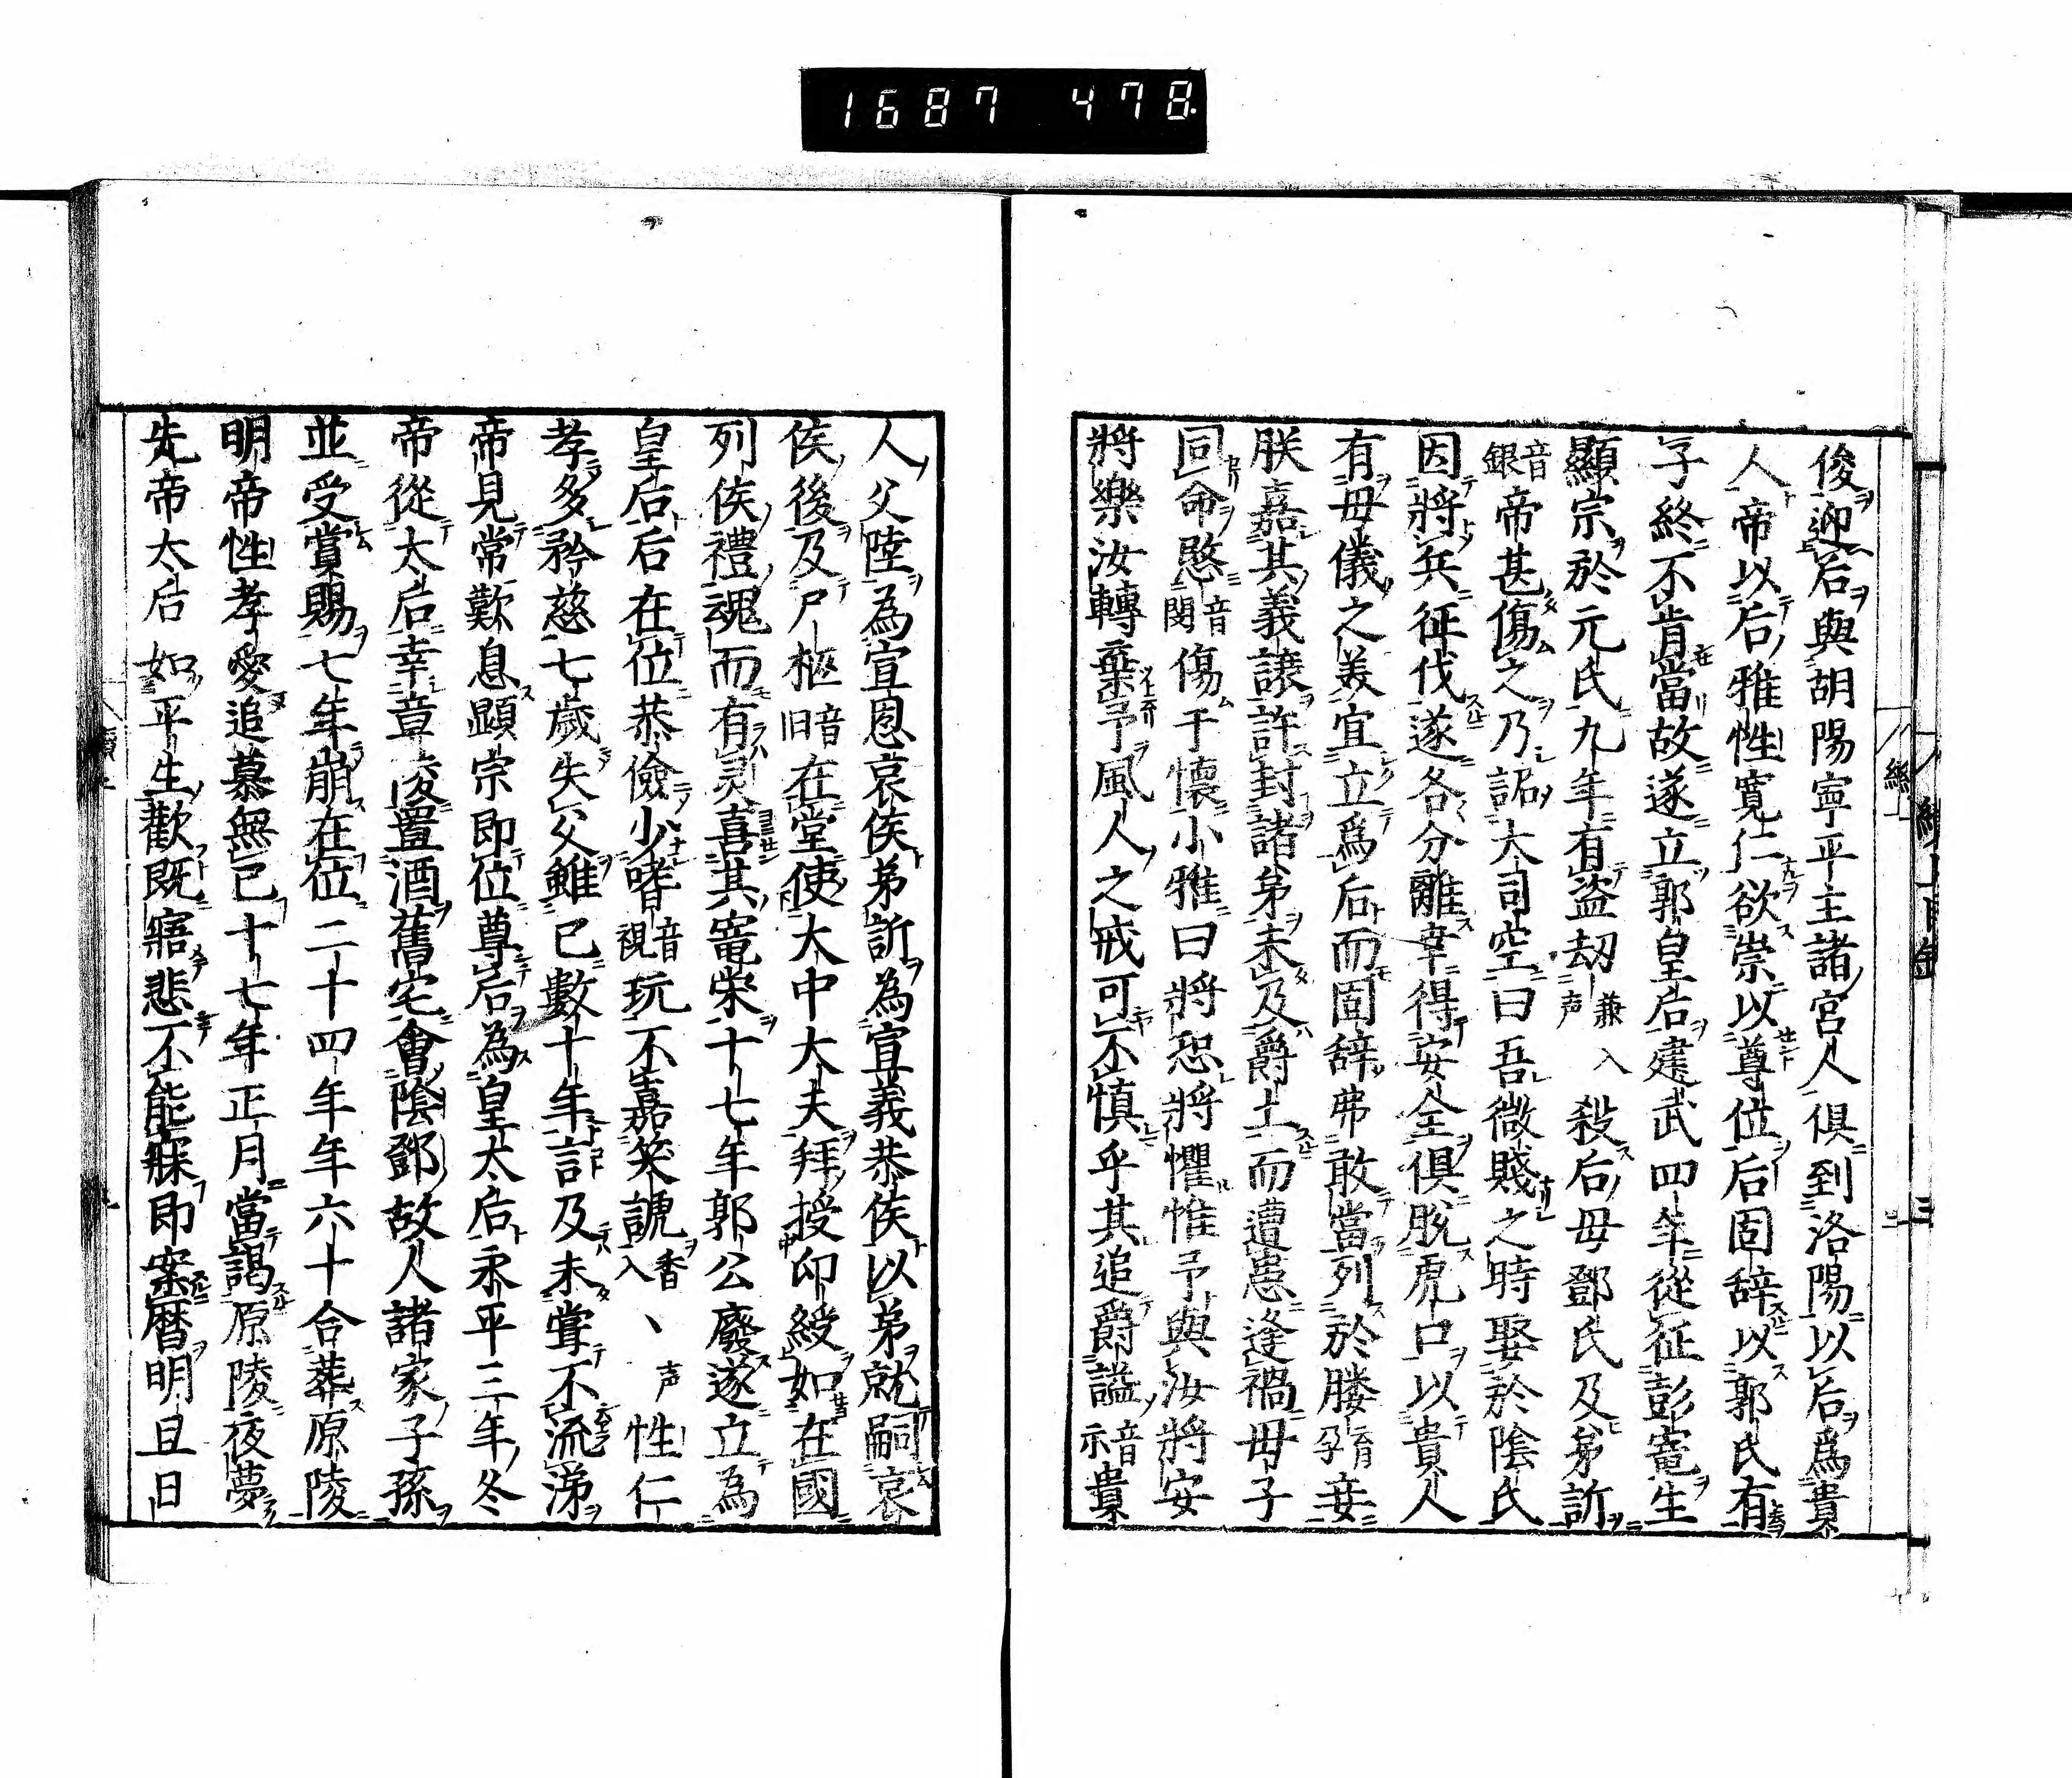 1687 478
俊迎后與胡陽寧平主諸宮人俱到洛陽以后爲貴
人帝以后雅性寛仁欲崇以尊位后固辞以郭氏有
子終不肯當故遂立郭皇后建武四年從征彭寵生
顯宗於元氏九年有盜刼兼入声殺后母鄧氏及弟訢
音銀帝甚傷之乃詔大司空曰吾微賤之時娶於陰氏
因將兵征伐遂各分離幸得安全俱脫虎口以貴人
有母儀之羙宜立爲后而固辞弗敢當列於媵育孕妾
朕嘉其義讓許封諸弟未及爵土而遭患逢禍母子
同命愍音閔傷于懷小雅曰將恐將懼惟予與汝將安
將樂汝轉棄予風人之戒可不慎乎其追爵謚音示貴
人父陸為宣恩哀侯弟訢為宣義恭侯以弟就嗣哀
侯後及尸柩音旧在堂使大中大夫拜授印綬如在國
列侯禮魂而有灵喜其寵栄十七年郭公廢遂立為
皇后后在位恭儉少嗜音視玩不嘉笑謔香入丶声性仁
孝多矜慈七歲失父雖已數十年言及未甞不流涕
帝見常歎息顕宗即位尊后為皇太后永平三年冬
帝從太后幸章陵置酒舊宅會陰鄧故人諸家子孫
並受賞賜七年崩在位二十四年年六十合葬原陵
明帝性孝愛追慕無已十七年正月當謁原陵夜夢
先帝太后如平生歡既寤悲不能寐即案暦明旦日